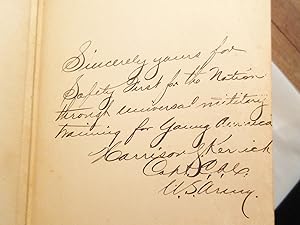 Sincerely yours for
Safety First for the Nation
through universal military
training for Young America
Harrison J. Kerrick
Capt. C.A.C.
U.S. Army.